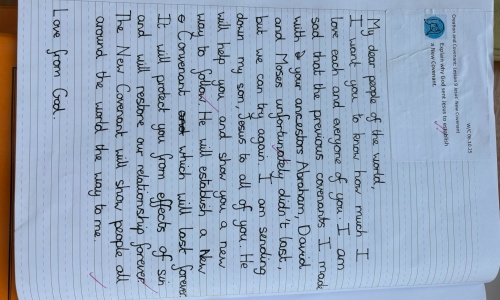 W/C 06.10.25
Creation and Covenant: Lesson 6 Jesus' New Covenant
Explain why God sent Jesus to establish
a New Covenant.
My dear people of the world,
I want you to know how much I
love each and everyone of you. I am
sad that the previous covenants I made
with your ancestors Abraham, David
and Moses unfortunately didn't last,
but we can try again. I am sending
down my son, Jesus to all of you. He
will help you and show you a new
way to follow. He will establish a New
Convenant and which will last forever.
It will protect you from effects of sin
and will restore our relationship forever.
The New Covenant will show people all
around the world the way to me.
Love from God.